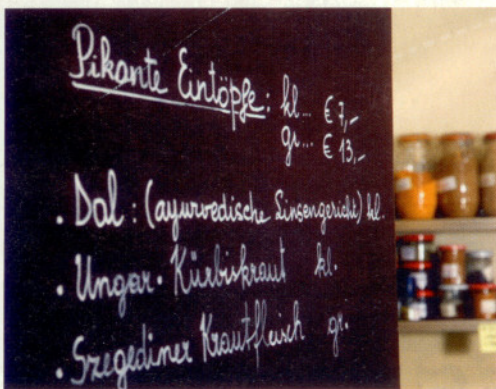 Pikante Eintöpfe: kl... € 7,-
gr... € 13,-
. Dal: (ayurvedische Linsengericht) kl.
. Ungar. Kürbiskraut kl.
. Szegediner Krautfleisch gr.